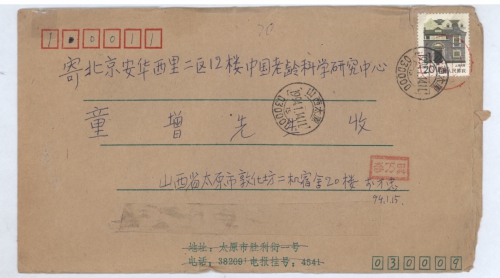 100011
寄北京安华西里二区12楼中国老龄科学研究中心
童增先生 收
山西省太原市敦化坊二机宿舍20楼
94.1.15.
地址：太原市胜利街一号
电话：38209 电报挂号：4541
030009
20
山西太原
1994.1.14.17
030000